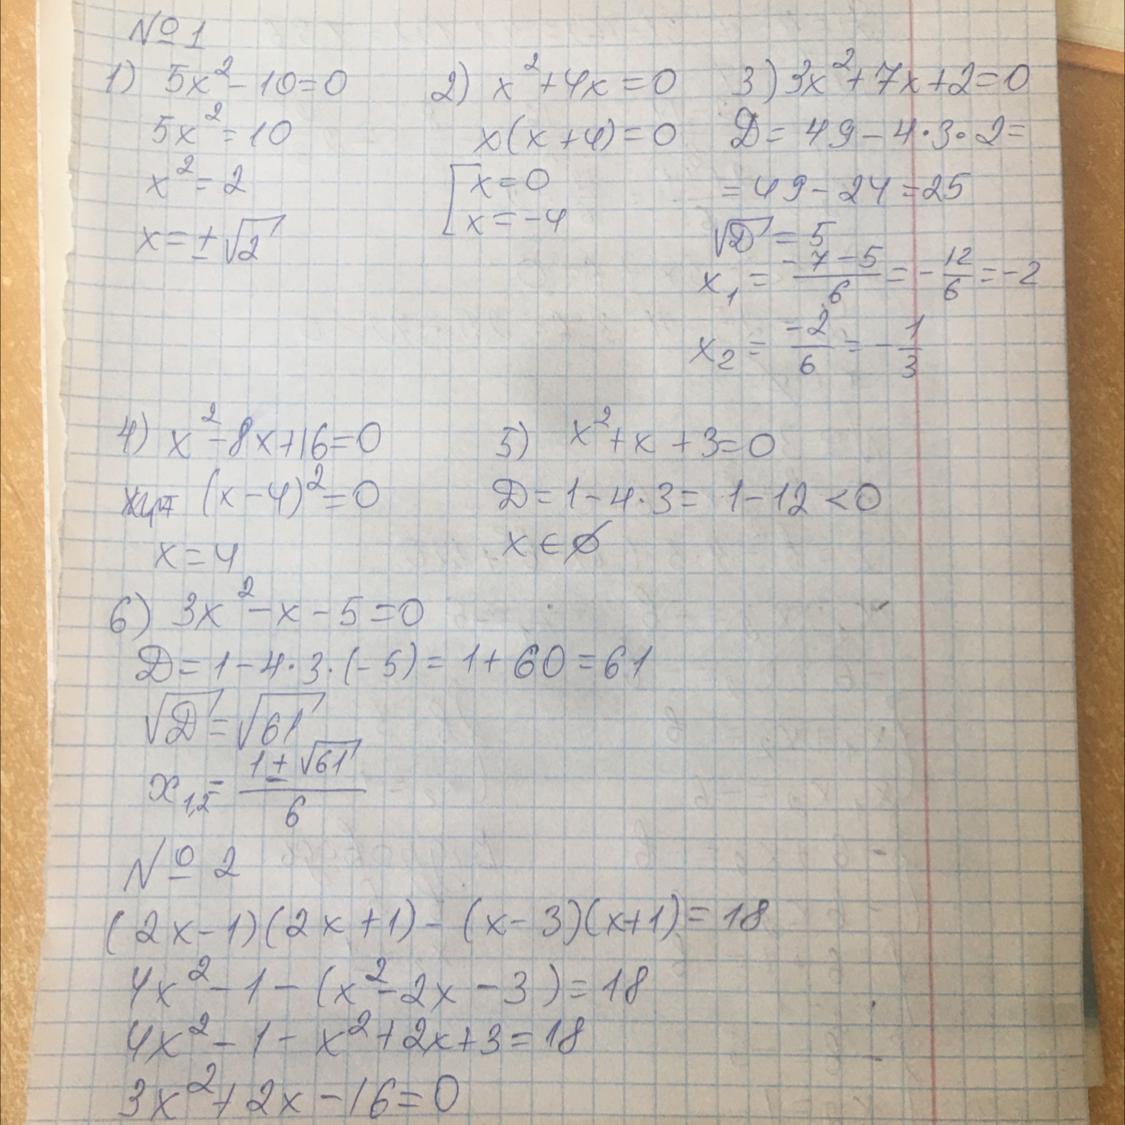 № 1
1) 5x² - 10 = 0
5x² = 10
x² = 2
x = ± √2
2) x² + 4x = 0
x(x + 4) = 0
[ x = 0
x = -4
3) 3x² + 7x + 2 = 0
D = 49 - 4·3·2 =
= 49 - 24 = 25
√D = 5
x₁ = (-7 - 5)/6 = -12/6 = -2
x₂ = -2/6 = -1/3
4) x² - 8x + 16 = 0
(x - 4)² = 0
x = 4
5) x² + x + 3 = 0
D = 1 - 4·3 = 1 - 12 < 0
x ∈ ∅
6) 3x² - x - 5 = 0
D = 1 - 4·3·(-5) = 1 + 60 = 61
√D = √61
x₁,₂ = (1 ± √61)/6
№ 2
(2x - 1)(2x + 1) - (x - 3)(x + 1) = 18
4x² - 1 - (x² - 2x - 3) = 18
4x² - 1 - x² + 2x + 3 = 18
3x² + 2x - 16 = 0